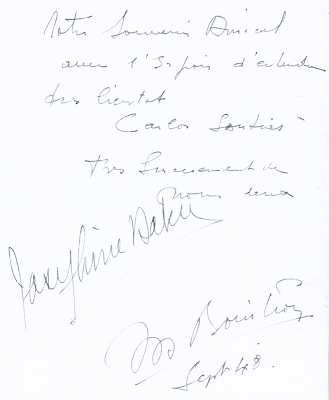 Notre Souvenir Amical
avec l'Espoir d'entendre
très bientot
Carlos
Très Sincerement de
nous deux
Josephine Baker
Jo Bouillon
Sept 48.